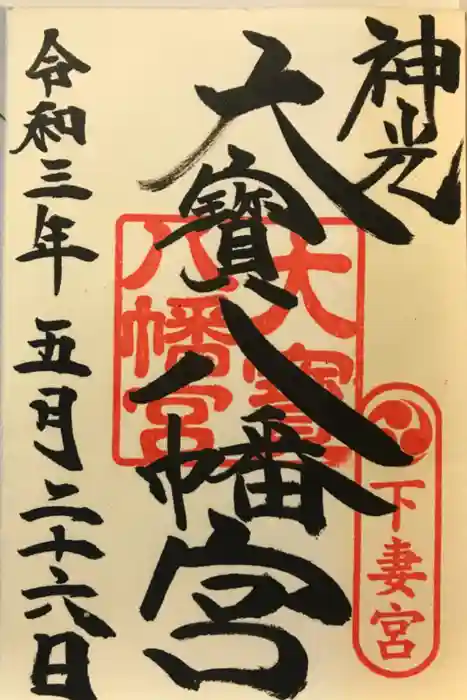 神光
大寳八幡宮
大寳
八幡宮
下妻宮
令和三年五月二十六日